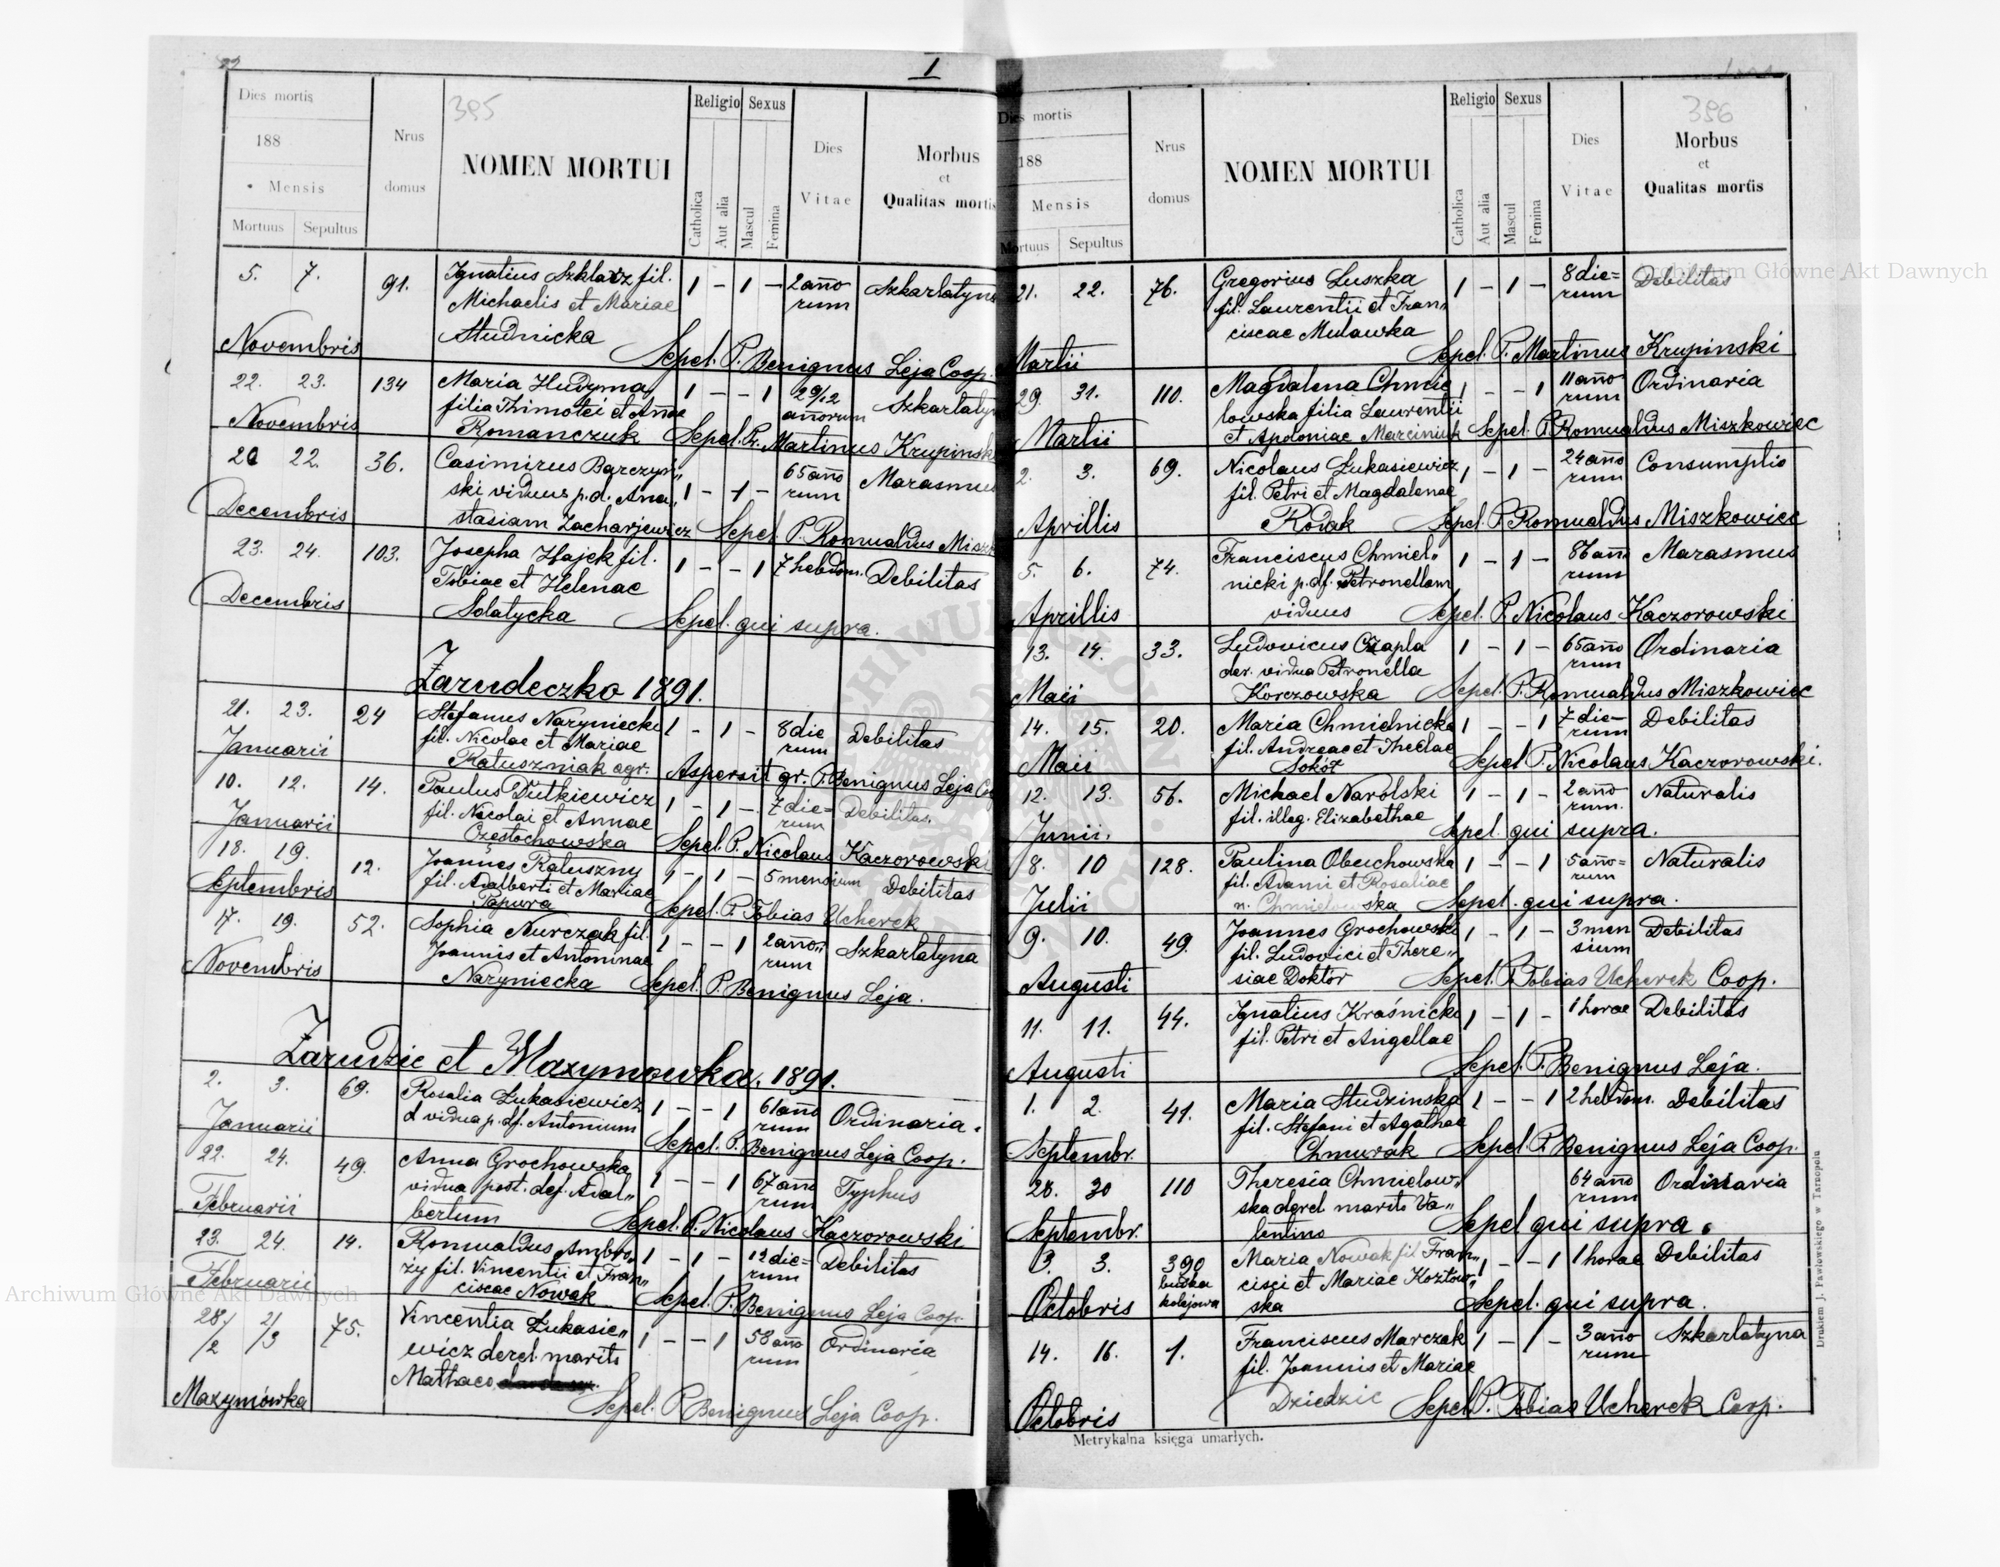 I
385
Dies mortis
188
Mensis
Mortuus Sepultus
Nrus domus
NOMEN MORTUI
Religio
Catholica
Aut alia
Sexus
Mascul
Femina
Dies Vitae
Morbus
et
Qualitas mortis
5. 7. 91. Ignatius Szklarz fil. 1 – 1 – 2 anno Szkarlatyna
Michaelis et Mariae rum
Novembris Studnicka Sepel. P. Benignus Leja Coop.
22. 23. 134 Maria Hudyma 1 – – 1 2 9/12 Szkarlatyna
filia Thimotei et Annae annorum
Novembris Romanczuk Sepel. P. Martinus Krupinski
22. 36. Casimirus Barczyń„ 1 – 1 – 65 anno Marasmus
ski viduus p. d. Ana„ rum
Decembris stasiam Zacharjewicz Sepel. P. Romualdus
23. 24. 103. Josepha Hajek fil. 1 – – 1 7 hebdom. Debilitas
Tobiae et Helenae
Decembris Solatycka Sepel. qui supra.
Zarudeczko 1891.
21. 23. 24 Stefanus Naryniecki 1 – 1 – 8 die Debilitas
fil. Nicolae et Mariae rum
Januarii Ratuszniak agr. Aspersit gr. P. Benignus Leja
10. 12. 14. Paulus Dutkiewicz 1 – 1 – 7 die= Debilitas.
fil. Nicolai et Annae rum
Januarii Częstochowska Sepel. P. Nicolaus Kaczorowski
18. 19. 12. Joannes Ratuszny 1 – 1 – 5 mensium Debilitas
Septembris fil. Adalberti et Mariae
Papura Sepel. P. Tobias Ucherek
17. 19. 52. Sophia Nurczak fil. 1 – – 1 2 anno„ Szkarlatyna
Joannis et Antoninae rum
Novembris Naryniecka Sepel. P. Benignus Leja.
Zarudzie et Maxymowka. 1891.
2. 3. 69. Rosalia Łukasiewicz 1 – – 1 61 anno Ordinaria.
d vidua p. df. Antonium rum
Januarii Sepel. P. Benignus Leja Coop.
22. 24. 49. Anna Grochowska 1 – – 1 67 anno Typhus
vidua post. def. Adal„ rum
Februarii bertum Sepel. P. Nicolaus Kaczorowski
23. 24. 14. Romualdus Ambro„ 1 – 1 – 12 die= Debilitas
ży fil. Vincentii et Fran„ rum
Februarii ciscae Nowak Sepel. P. Benignus Leja Coop.
28/2 2/3 75. Vincentia Łukasie„ 1 – – 1 58 anno Ordinaria
wicz derel. marito rum
Mathaeo
Maxymówka Sepel. P. Benignus Leja Coop.
386
Dies mortis
188
Mensis
Mortuus Sepultus
Nrus domus
NOMEN MORTUI
Religio
Catholica
Aut alia
Sexus
Mascul
Femina
Dies Vitae
Morbus
et
Qualitas mortis
21. 22. 76. Gregorius Luszka 1 – 1 – 8 die= Debilitas
fil. Laurentii et Fran„ rum
ciscae Mulawka
Martii Sepel. P. Martinus Krupinski
29. 31. 110. Magdalena Chmie 1 – – 1 11 anno Ordinaria
lowska filia Laurentii rum
Martii et Apoloniae Marciniuk Sepel. P. Romualdus Miszkowiec
2. 3. 69. Nicolaus Łukasiewicz 1 – 1 – 24 anno Consumptio
fil. Petri et Magdalenae rum
Aprillis Rodak Sepel. P. Romualdus Miszkowiec
5. 6. 74. Franciscus Chmiel„ 1 – 1 – 86 anno Marasmus
nicki p. df. Petronellam rum
Aprillis viduus Sepel. P. Nicolaus Kaczorowski
13. 14. 33. Ludovicus Czapla 1 – 1 – 65 anno Ordinaria
der. vidua Petronella rum
Maii Korczowska Sepel. P. Romualdus Miszkowiec
14. 15. 20. Maria Chmielnicka 1 – – 1 7 die– Debilitas
fil. Andreae et Theclae rum
Maii Sokół Sepel P. Nicolaus Kaczorowski.
12. 13. 56. Michael Narolski 1 – 1 – 2 anno Naturalis
fil. illeg. Elizabethae rum.
Junii. Sepel. qui supra.
8. 10 128. Paulina Obuchowska 1 – – 1 5 anno= Naturalis
fil. Adami et Rosaliae rum
Julii n. Chmielowska Sepel. qui supra.
9. 10. 49. Joannes Grochowski 1 – 1 – 3 men Debilitas
fil. Ludovici et There„ sium
Augusti siae Doktór Sepel. P. Tobias Ucherek Coop.
11. 11. 44. Ignatius Kraśnicki 1 – 1 – 1 horae Debilitas
fil. Petri et Angellae
Augusti Sepel. P. Benignus Leja.
1. 2. 41. Maria Studzinska 1 – – 1 2 hebdom. Debilitas
fil. Stefani et Agathae
Septembr. Chmurak Sepel. P. Benignus Leja Coop.
28. 30 110 Theresia Chmielow„ 64 anno Ordinaria
ska derel. marito Va„ rum
Septembr. lentino Sepel qui supra.
3. 3. 390 Maria Nowak fil. Fran„ 1 – – 1 1 horae Debilitas
budka cisci et Mariae Kozłow„
Octobris kolejowa ska Sepel. qui supra.
14. 16. 1. Franciscus Marczak 1 – 1 – 3 anno Szkarlatyna
fil. Joannis et Mariae rum
Octobris Dziedzic Sepel. P. Tobias Ucherek Coop.
Metrykalna księga umarłych.
Drukiem J. Pawłowskiego w Tarnopolu
Archiwum Główne Akt Dawnych
Archiwum Główne Akt Dawnych